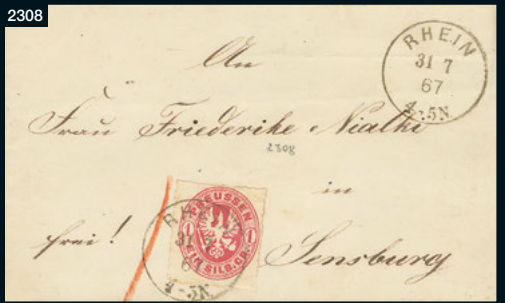 2308
RHEIN
31 7
67
4-5N.
An
Frau Friederike Nialki
2308
in
frei! Sensburg
PREUSSEN
1 1
EIN SILB. GR.
RHEIN
31 7
67
4-5N